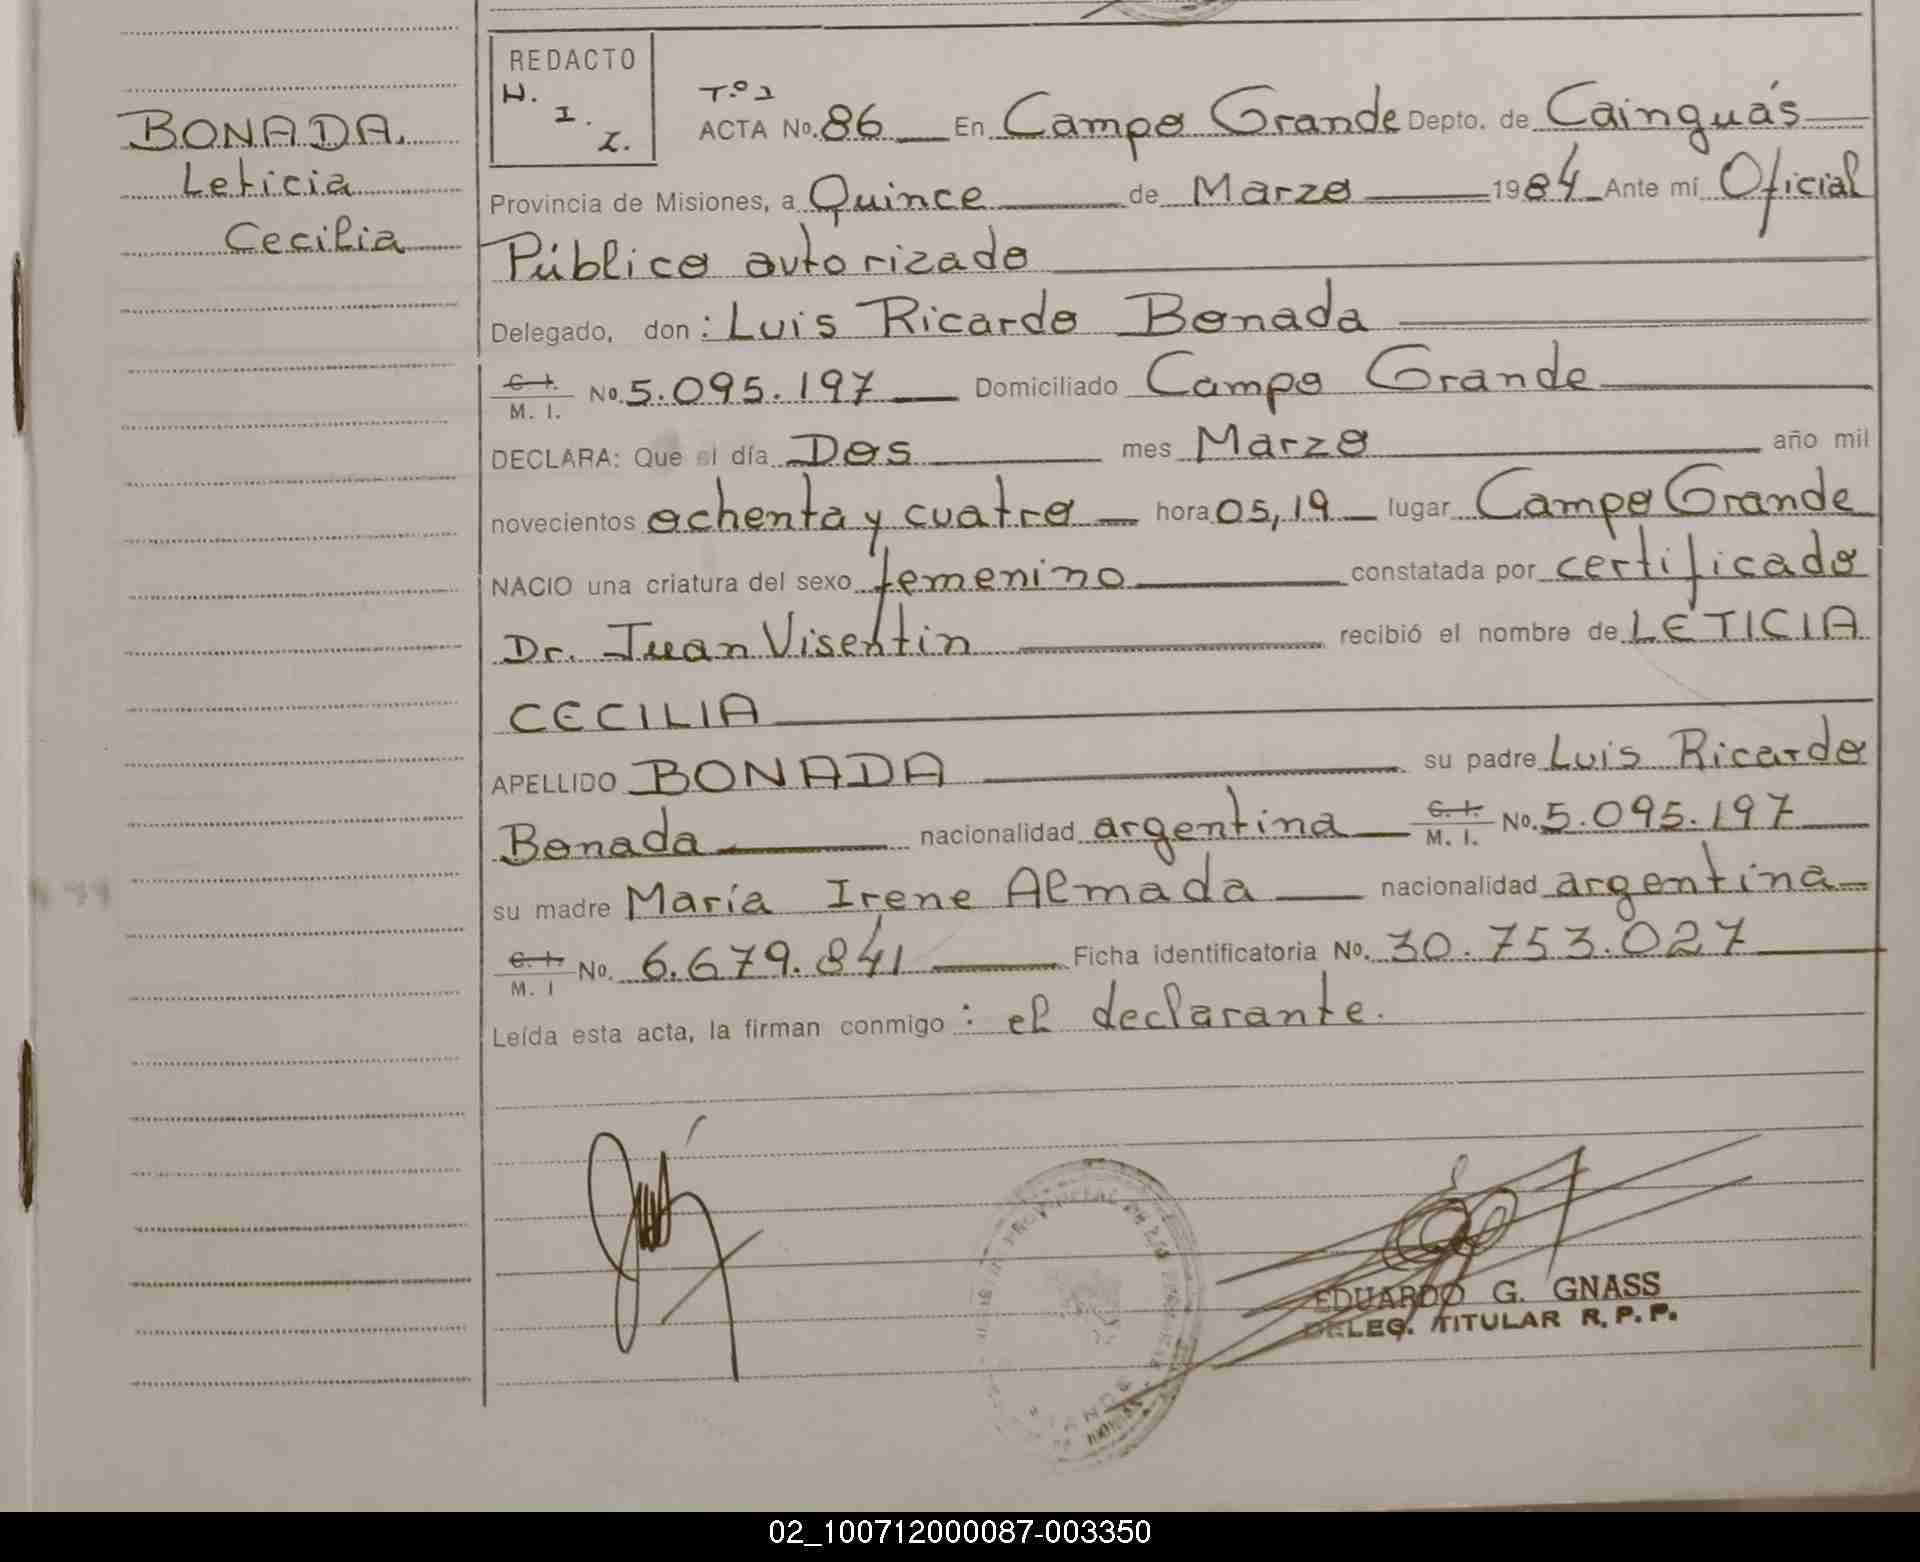 BONADA.
Leticia
Cecilia
REDACTO
H.
I.
Z.
T.º 1
ACTA No. 86 En Campo Grande Depto. de Cainguás
Provincia de Misiones, a Quince de Marzo 1984 Ante mí Oficial
Público autorizado
Delegado, don : Luis Ricardo Bonada
C. I. M. I. No. 5.095.197 Domiciliado Campo Grande
DECLARA: Que el día Dos mes Marzo año mil
novecientos ochenta y cuatro hora 05,19 lugar Campo Grande
NACIO una criatura del sexo femenino constatada por certificado
Dr. Juan Visentin recibió el nombre de LETICIA
CECILIA
APELLIDO BONADA su padre Luis Ricardo
Bonada nacionalidad argentina C. I. M. I. No. 5.095.197
su madre María Irene Almada nacionalidad argentina
C. I. M. I No. 6.679.841 Ficha identificatoria No. 30.753.027
Leída esta acta, la firman conmigo : el declarante.
EDUARDO G. GNASS
DELEG. TITULAR R. P. P.
02_100712000087-003350